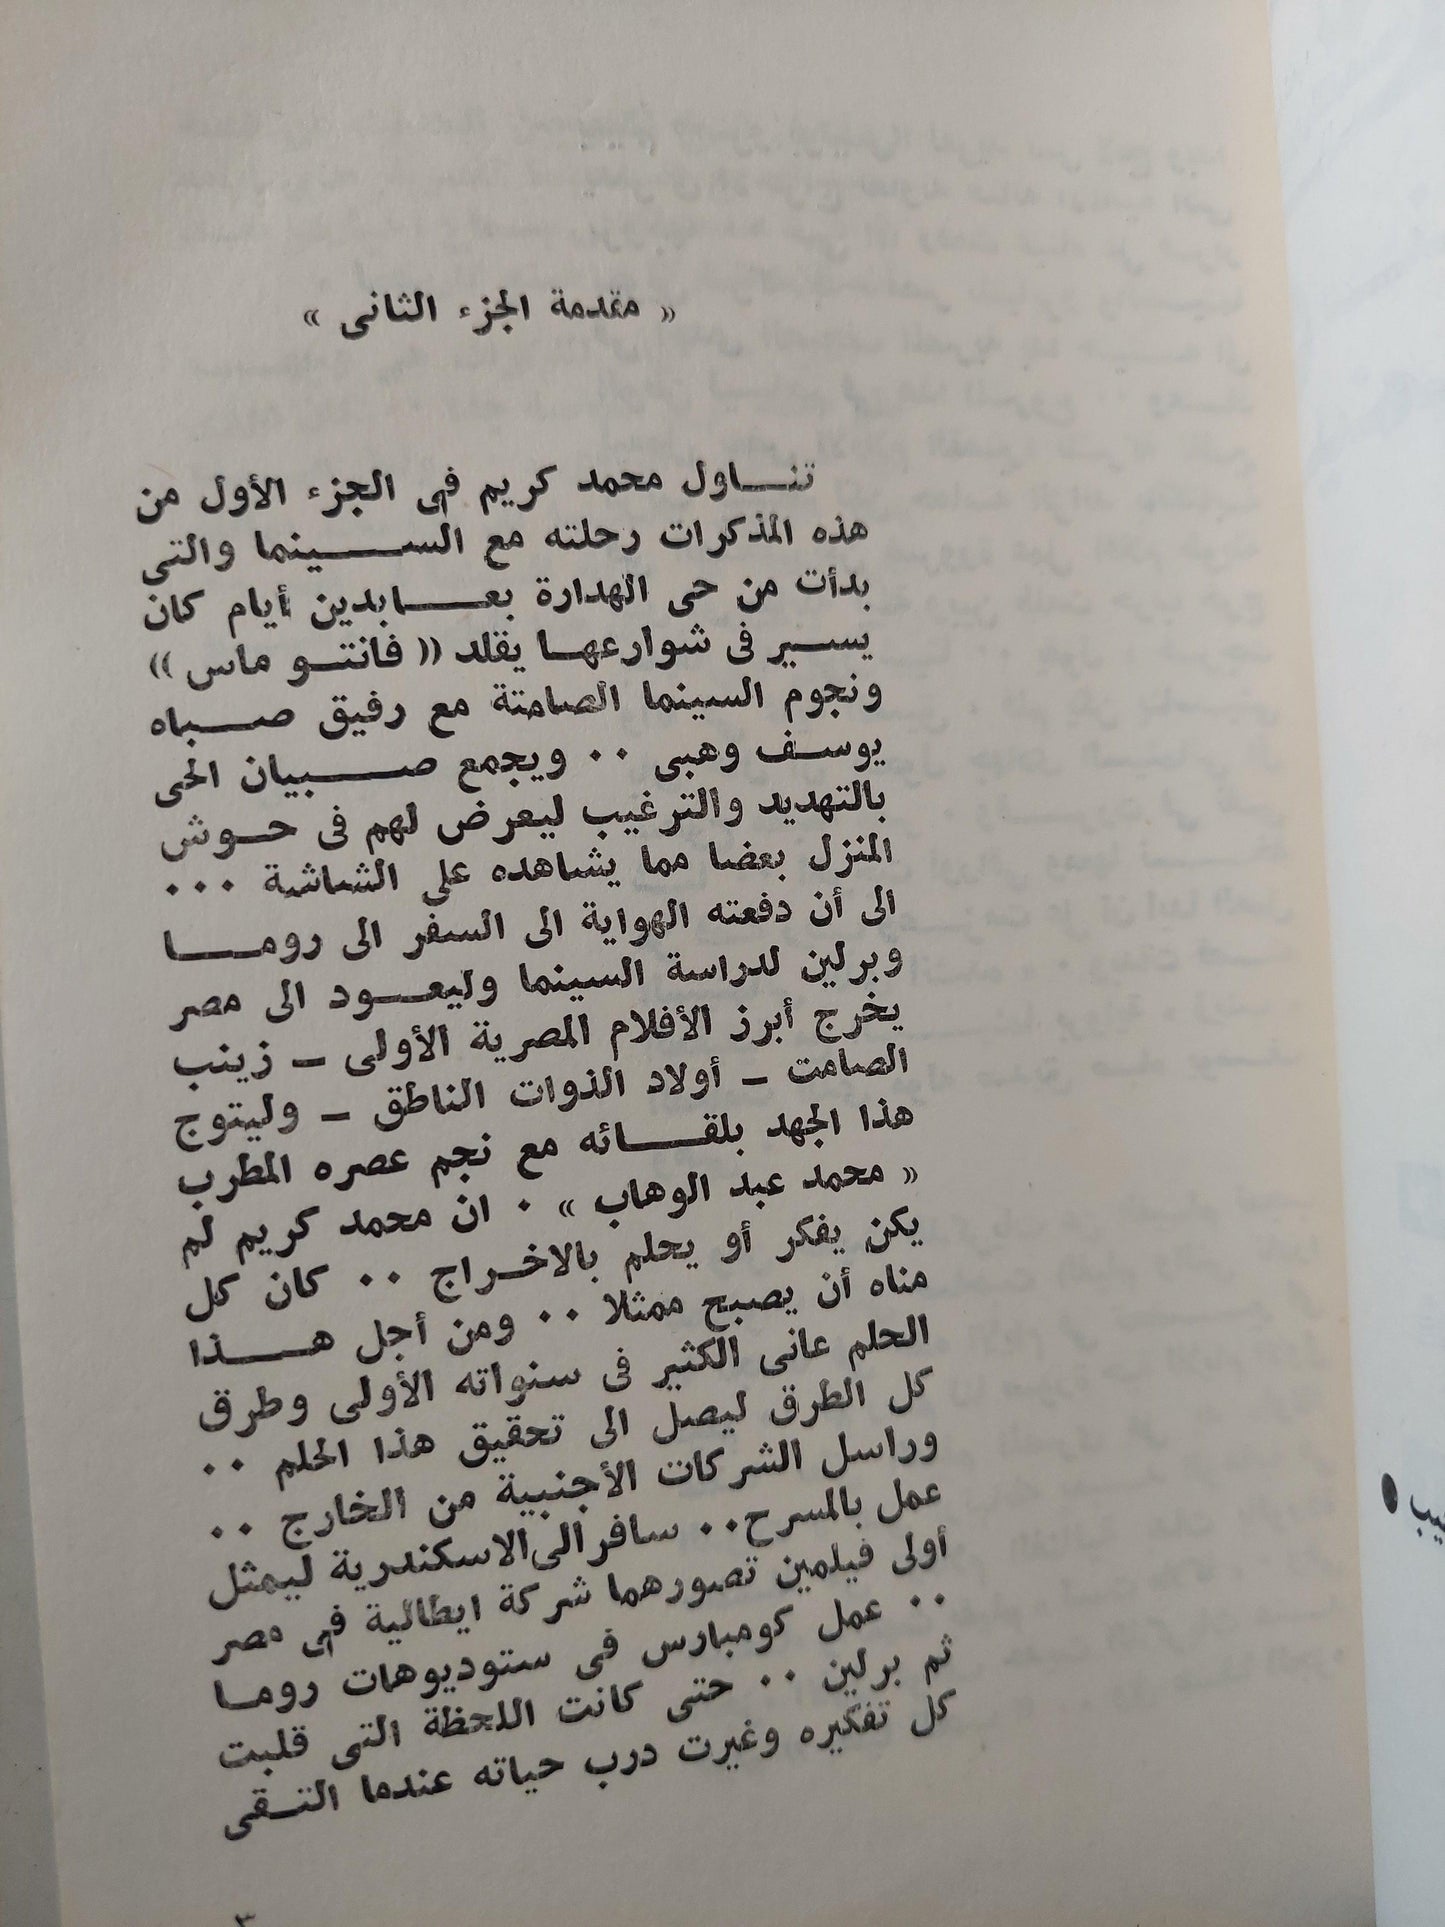 « مقدمة الجزء الثانى »
تناول محمد كريم فى الجزء الأول من
هذه المذكرات رحلته مع السينما والتى
بدأت من حى الهدارة بعابدين أيام كان
يسير فى شوارعها يقلد (( فانتو ماس ))
ونجوم السينما الصامتة مع رفيق صباه
يوسف وهبى ٠٠ ويجمع صبيان الحى
بالتهديد والترغيب ليعرض لهم فى حوش
المنزل بعضا مما يشاهده على الشاشة ٠٠٠
الى أن دفعته الهواية الى السفر الى روما
وبرلين لدراسة السينما وليعود الى مصر
يخرج أبرز الأفلام المصرية الأولى – زينب
الصامت – أولاد الذوات الناطق – وليتوج
هذا الجهد بلقائه مع نجم عصره المطرب
« محمد عبد الوهاب » ٠ ان محمد كريم لم
يكن يفكر أو يحلم بالاخراج ٠٠ كان كل
مناه أن يصبح ممثلا ٠٠ ومن أجل هذا
الحلم عانى الكثير فى سنواته الأولى وطرق
كل الطرق ليصل الى تحقيق هذا الحلم ٠٠
وراسل الشركات الأجنبية من الخارج ٠٠
عمل بالمسرح٠٠ سافر الى الاسكندرية ليمثل
أولى فيلمين تصورهما شركة ايطالية فى مصر
٠٠ عمل كومبارس فى ستوديوهات روما
ثم برلين ٠٠ حتى كانت اللحظة التى قلبت
كل تفكيره وغيرت درب حياته عندما التقى
٣